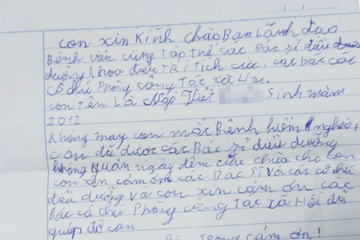 con xin Kính chào Ban Lãnh đạo
Bệnh viện cùng tập thể các Bác sĩ điều
dưỡng khoa điều TRị Tích cực, các bác các
cô chú Phòng công Tác xã Hội.
con tên Là Ngô Viết Sinh năm
2012
Không may con mắc Bệnh hiểm nghèo,
con đã được các Bác sĩ điều dưỡng
không quản ngày đêm cứu chữa cho con
con xin cảm ơn các Bác sĩ Và các cô chú
điều dưỡng và con xin cảm ơn các
Bác cô chú Phòng công Tác xã Hội đã
giúp đỡ con
Trọng cảm ơn!